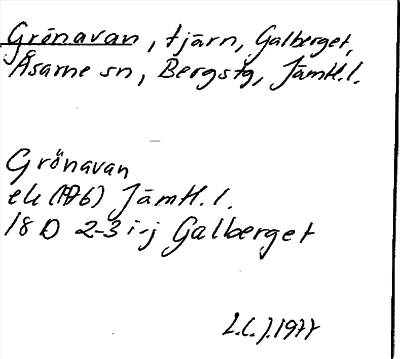 Grönavan, tjärn, Galberget,
Åsarne sn, Bergs tg, Jämtl.l.
Grönavan
ek (1976) Jämtl.l.
18 D 2-3 i-j Galberget
L.C.J. 1977